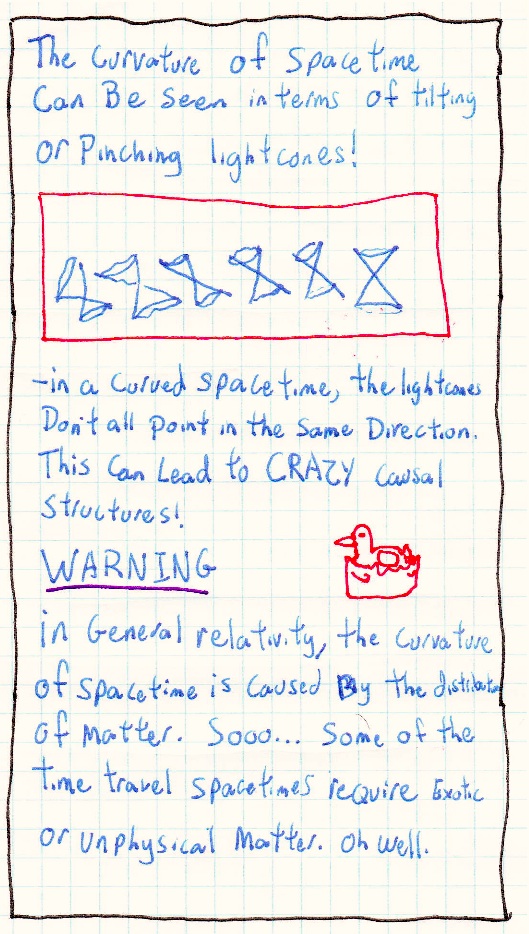 The Curvature of Spacetime
Can Be Seen in terms of tilting
or Pinching lightcones!
-in a Curved spacetime, the lightcones
Don't all point in the Same Direction.
This Can Lead to CRAZY Causal
Structures!
WARNING
in General relativity, the Curvature
of spacetime is Caused By the distribution
of Matter. Sooo... Some of the
time travel spacetimes require Exotic
or unphysical Matter. Oh well.